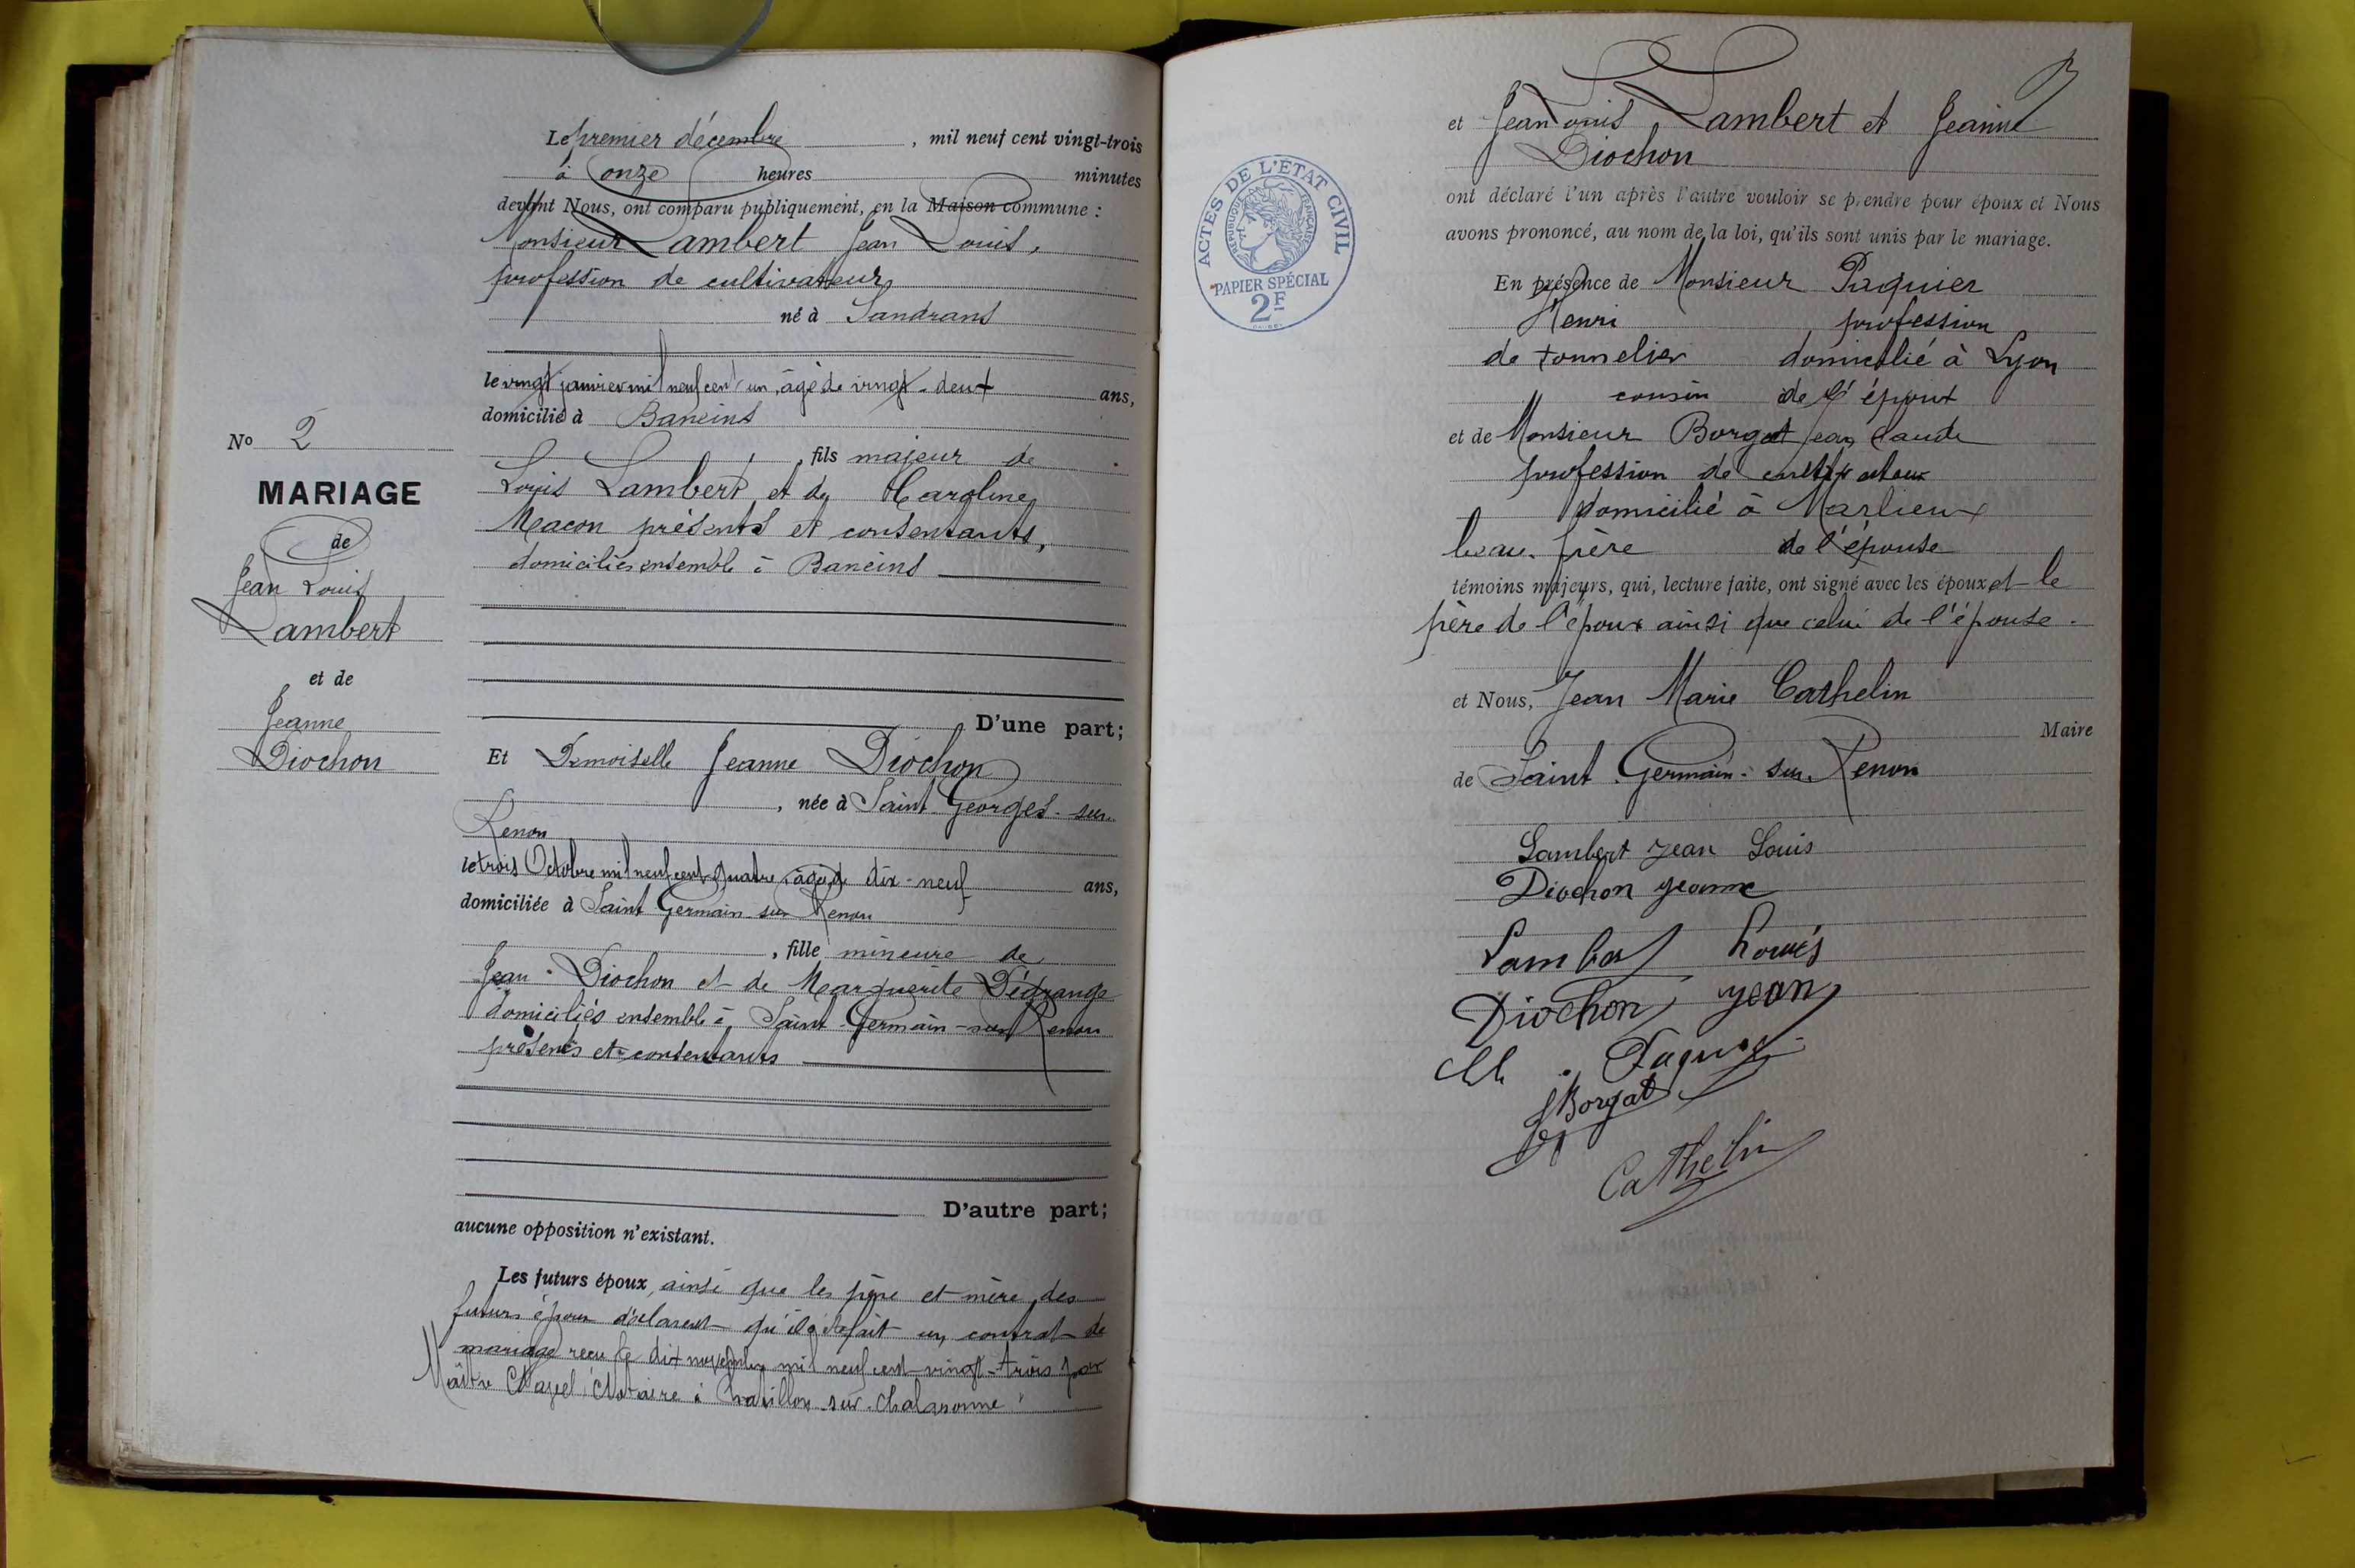 Le premier décembre, mil neuf cent vingt-trois
à onze heures minutes
devant Nous, ont comparu publiquement, en la Maison commune :
Monsieur Lambert Jean Louis,
profession de cultivateur
né à Sandrans
le vingt janvier mil neuf cent un, âgé de vingt-deux ans,
domicilié à Baneins
, fils majeur de
Louis Lambert et de Caroline
Macon présents et consentants,
domiciliés ensemble à Baneins
D'une part;
No 2
MARIAGE
de
Jean Louis
Lambert
et de
Jeanne
Diochon
Et Demoiselle Jeanne Diochon
, née à Saint Georges-sur-
Renon
le trois Octobre mil neuf cent quatre, âgée de dix-neuf ans,
domiciliée à Saint Germain sur Renon
, fille mineure de
Jean Diochon et de Marguerite Dégrange
domiciliés ensemble à Saint-Germain-sur-Renon
présents et consentants
D'autre part;
aucune opposition n'existant.
Les futurs époux, ainsi que les père et mère des
futurs époux déclarent qu'il a été fait un contrat de
mariage reçu le dix novembre mil neuf cent vingt-trois par
Maître Notaire à Chatillon-sur-Chalaronne
et Jean Louis Lambert et Jeanne
Diochon
ont déclaré l'un après l'autre vouloir se prendre pour époux et Nous
avons prononcé, au nom de la loi, qu'ils sont unis par le mariage.
ACTES DE L'ETAT CIVIL
REPUBLIQUE FRANÇAISE
PAPIER SPÉCIAL
2F
En présence de Monsieur Paquier
Henri profession
de tonnelier domicilié à Lyon
cousin de l'époux
et de Monsieur Borgat Jean Claude
profession de cultivateur
domicilié à Marlieux
beau-frère de l'épouse
témoins majeurs, qui, lecture faite, ont signé avec les époux et le
père de l'époux ainsi que celui de l'épouse.
et Nous, Jean Marie Cathelin
Maire
de Saint Germain-sur-Renon
Lambert Jean Louis
Diochon Jeanne
Lambert Louis
Diochon Jean
Borgat
Cathelin